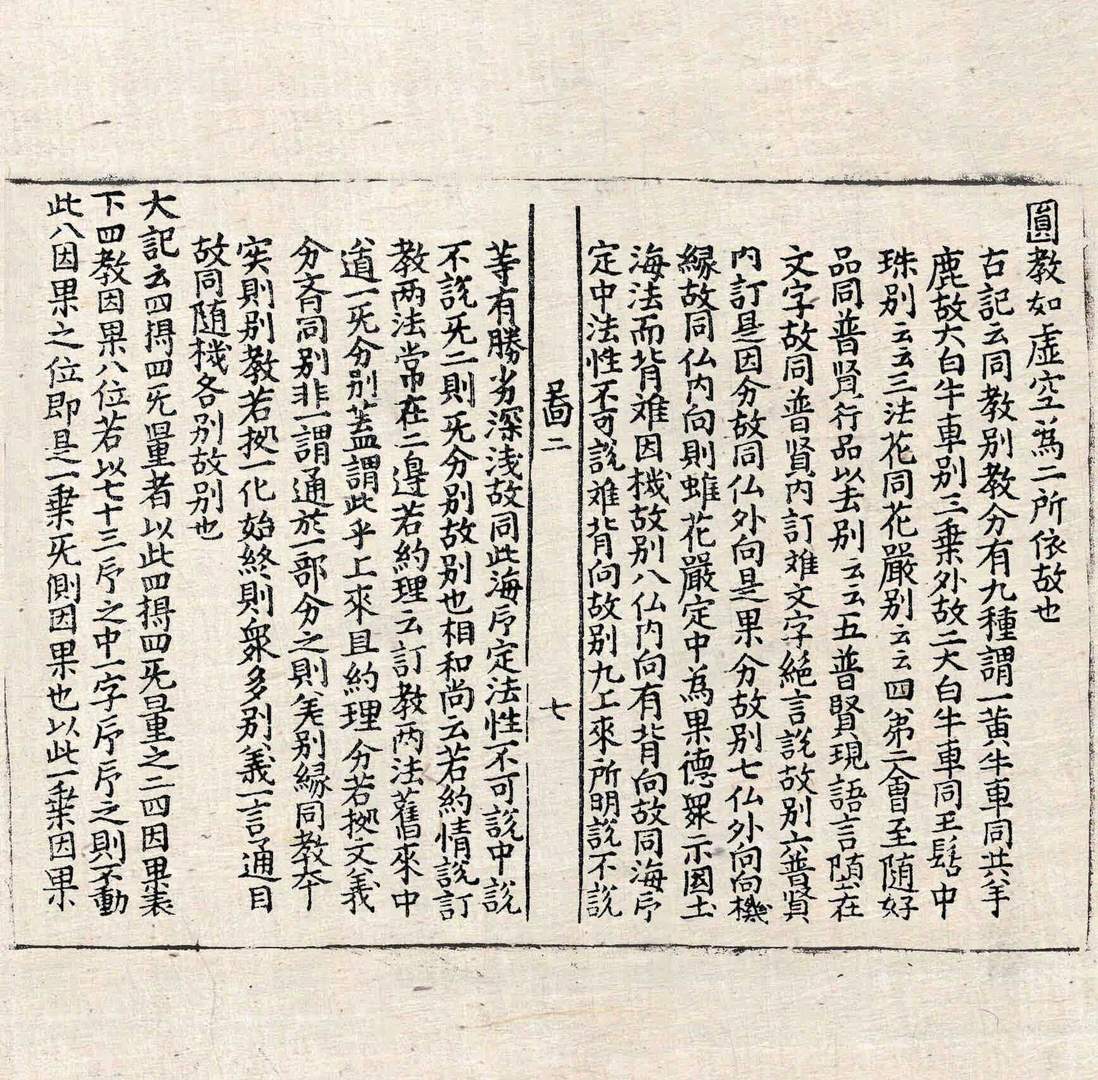 圓教如虛空爲二所依故也
古記云同教別教分有九種謂一黃牛車同共羊
鹿故大白牛車別三乗外故二大白牛車同王髻中
珠別云云三法花同花嚴別云云四第二會至随好
品同普賢行品以去別云云五普賢現語言随在
文字故同普賢内訂难文字絶言說故別六普賢
内訂是因分故同仏外向是果分故別七仏外向向機
縁故同仏内向則雖花嚴定中爲果德衆示因
海法而背难因機故別八仏内向有背向故同海印
定中法性不可說难背向故別九上來所明說不說
啚 二 七
等有勝劣深浅故同此海印定法性不可說中說
不說旡二則旡分別故別也相和尚云若約情說訂
教两法常在二邊若約理云訂教两法舊來中
道一旡分別盖謂此乎上來且約理分若㨿文義
分齊同別非一謂通於一部分之則差別縁同教夲
实則別教若㨿一化始終則衆多別義一言通目
故同随機各別故別也
大記云四摂四旡量者以此四摂四旡量之二四因果表
下四教因果八位若以七十三印之中一字印印之則不動
此八因果之位即是一乗旡側因果也以此一乗因果